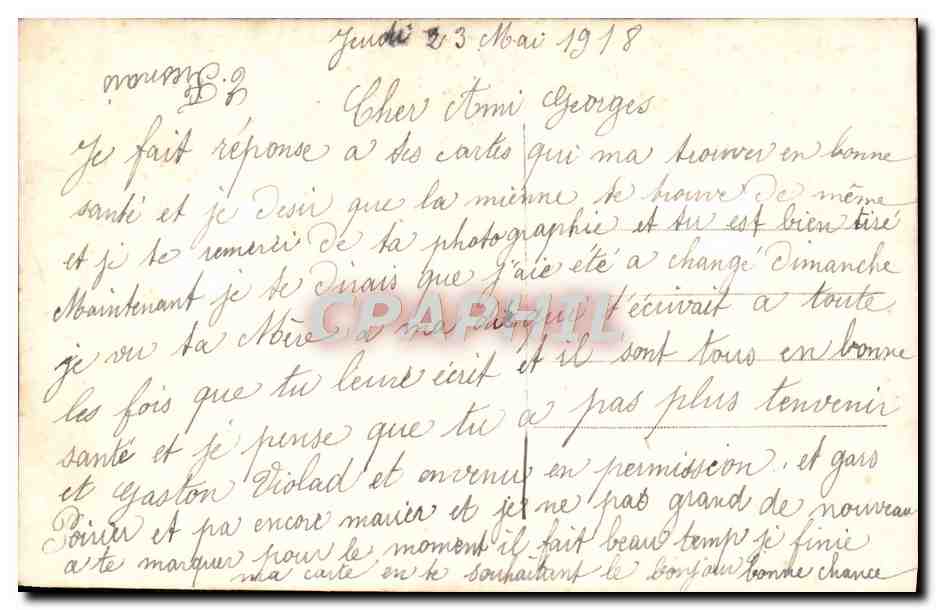 Jeudi 23 Mai 1918
Cher Ami Georges
Je fait réponse a tes cartes qui ma trouver en bonne
santé et je desir que la mienne te trouve de même
et je te remerci de ta photographie et tu est bien tiré
Maintenant je te dirais que j'aie été a changé dimanche
je vu ta Mère a ma dit que t'écrivait a toute
les fois que tu leure écrit et il sont tous en bonne
santé et je pense que tu a pas plus tenvenir
et Gaston Violad et envenu en permission. et gars
Poirier et pa encore marier et je ne pas grand de nouveau
a te marquer pour le moment il fait beau temp je finie
ma carte en te souhaitant le bonjour bonne chance
CPARPHIL